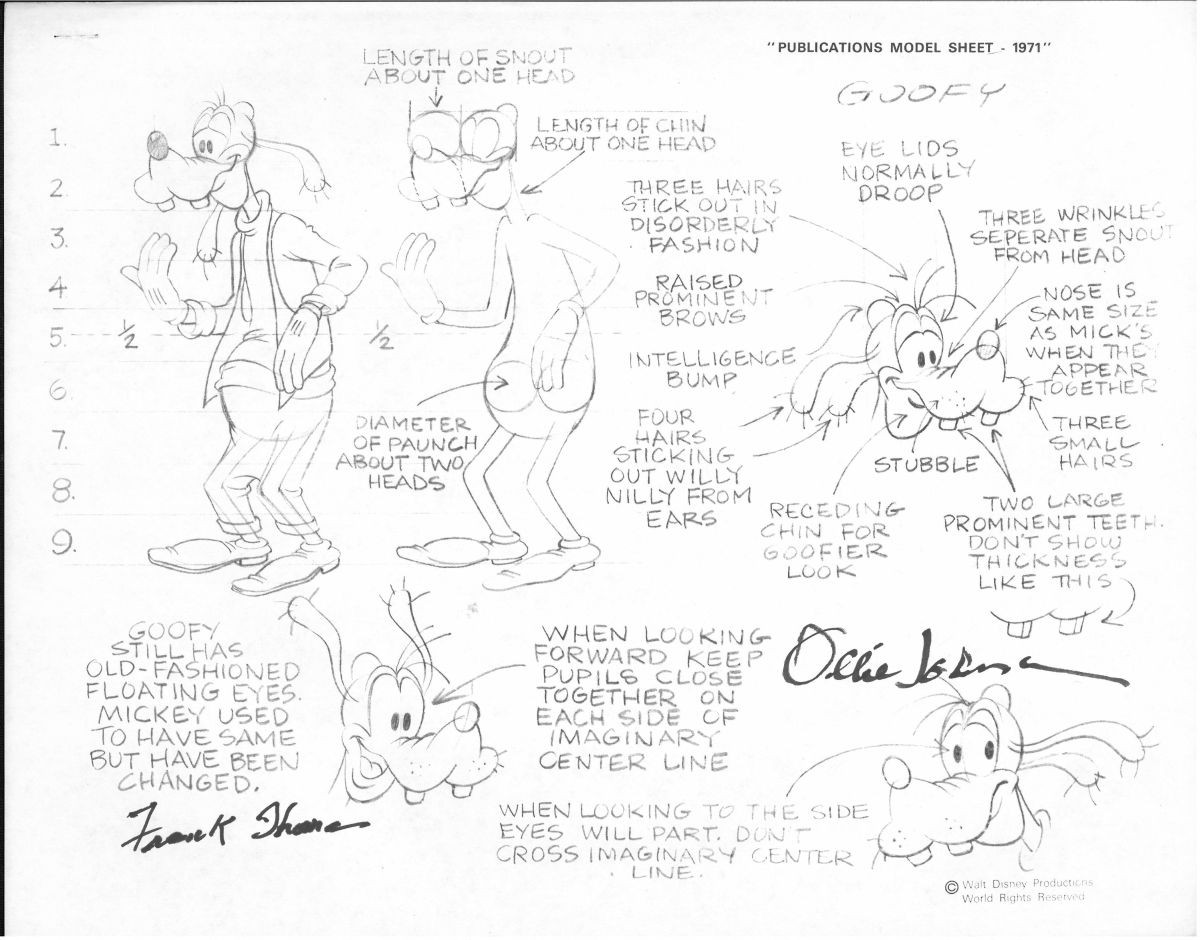 "PUBLICATIONS MODEL SHEET - 1971"
GOOFY
LENGTH OF SNOUT
ABOUT ONE HEAD
LENGTH OF CHIN
ABOUT ONE HEAD
1.
2
3.
4
5.
6.
7.
8.
9.
1/2
1/2
DIAMETER
OF PAUNCH
ABOUT TWO
HEADS
THREE HAIRS
STICK OUT IN
DISORDERLY
FASHION
RAISED
PROMINENT
BROWS
INTELLIGENCE
BUMP
FOUR
HAIRS
STICKING
OUT WILLY
NILLY FROM
EARS
EYE LIDS
NORMALLY
DROOP
THREE WRINKLES
SEPERATE SNOUT
FROM HEAD
NOSE IS
SAME SIZE
AS MICK'S
WHEN THEY
APPEAR
TOGETHER
THREE
SMALL
HAIRS
STUBBLE
RECEDING
CHIN FOR
GOOFIER
LOOK
TWO LARGE
PROMINENT TEETH.
DON'T SHOW
THICKNESS
LIKE THIS
GOOFY
STILL HAS
OLD-FASHIONED
FLOATING EYES.
MICKEY USED
TO HAVE SAME
BUT HAVE BEEN
CHANGED.
Frank Thomas
WHEN LOOKING
FORWARD KEEP
PUPILS CLOSE
TOGETHER ON
EACH SIDE OF
IMAGINARY
CENTER LINE
Ollie Johnston
WHEN LOOKING TO THE SIDE
EYES WILL PART. DON'T
CROSS IMAGINARY CENTER
LINE.
© Walt Disney Productions
World Rights Reserved